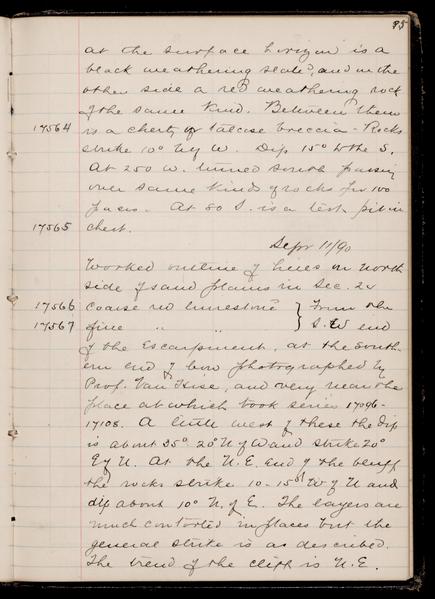 95
at the surface horizon is a
black weathering slate, and on the
other side a red weathering rock
of the same kind. Between them
17564 is a cherty or talcose breccia - Rocks
strike 10° N of W. Dip 15° to the S.
At 250 W. turned south passing
over same kinds of rocks for 100
paces. At 50 S. is a test pit in
17565 chert.
Sept 11/90
Worked outline of hills on north
side of sand plains in Sec. 20
17566 Coarse red limestone } From the
17567 fine " " } S.W end
of the Escarpment, at the South-
ern end of one photographed by
Prof. Van Hise, and very near the
place at which took series 17096-
17108. A little west of these the dip
is about 25° 20° N of W and strike 20°
E of N. At the N.E. end of the bluff
the rocks strike 10-15° W of N and
dip about 10° N. of E. The layers are
much contorted in places but the
general strike is as described.
The trend of the cliff is N.E.